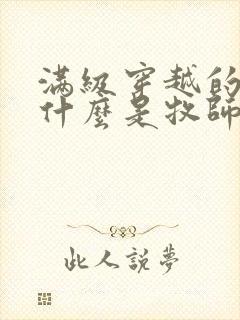 滿級穿越的
什麼是牧師
此人說夢